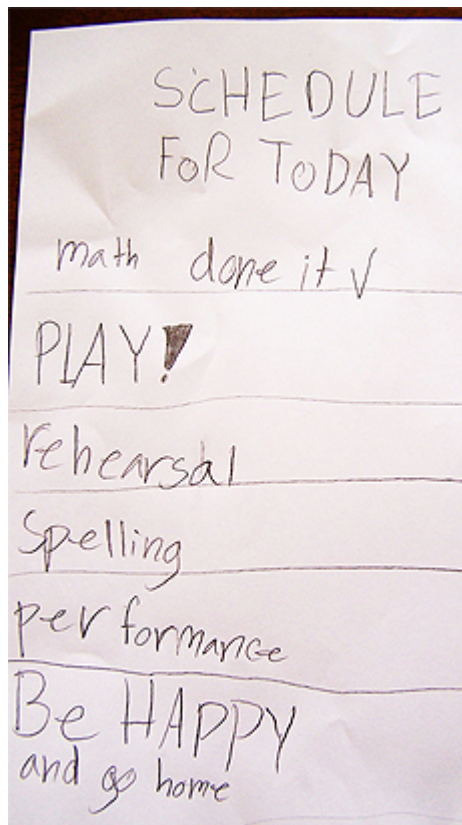 SCHEDULE
FoR ToDAY
math done it √
PLAY!
rehearsal
Spelling
performance
Be HAPPY
and go home